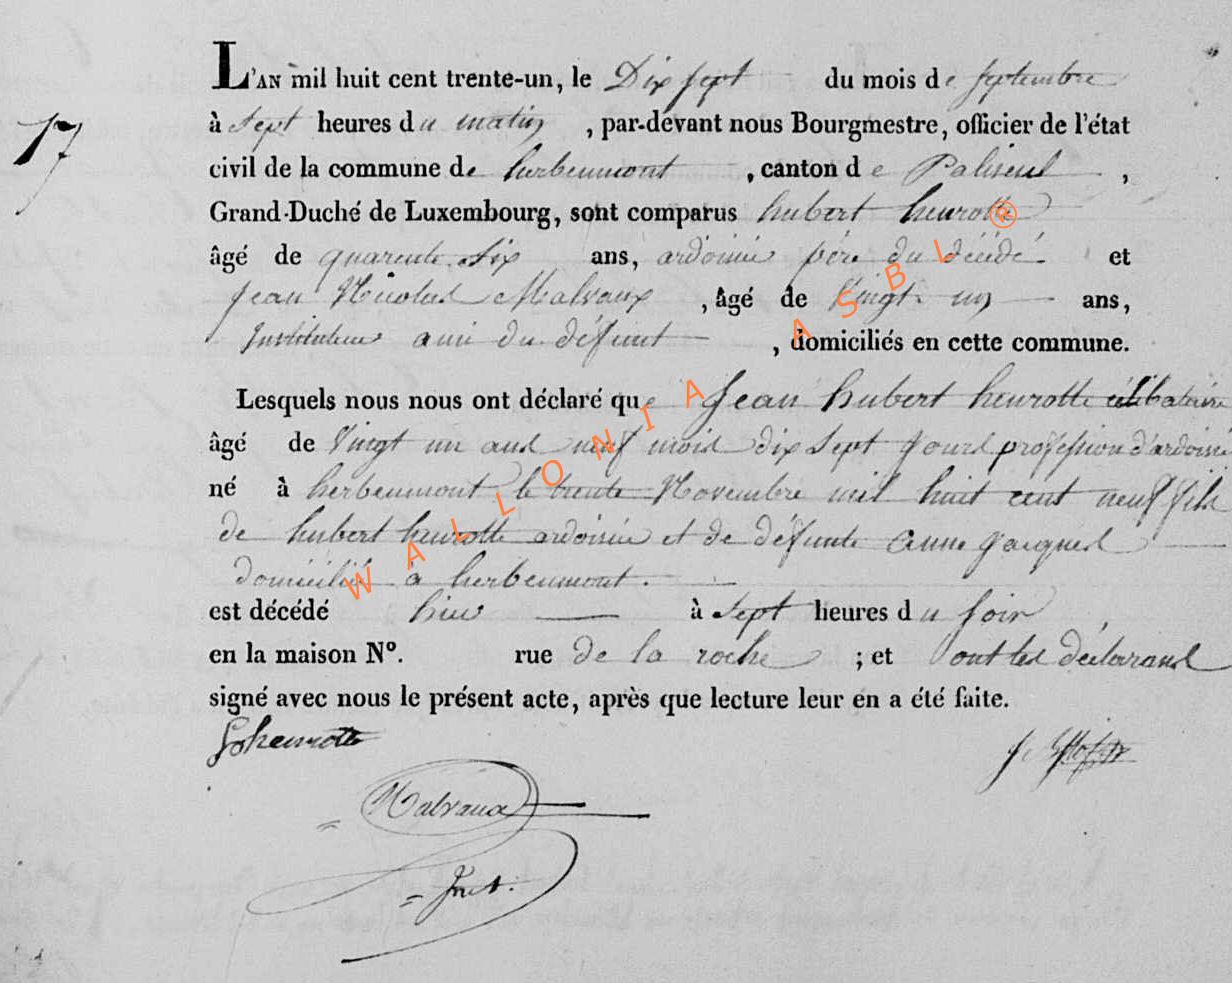 L'AN mil huit cent trente-un, le Dix sept du mois de septembre
17
à Sept heures du matin, par-devant nous Bourgmestre, officier de l'état
civil de la commune de herbeumont, canton de Paliseul,
Grand-Duché de Luxembourg, sont comparus hubert henrotte
âgé de quarente Six ans, ardoisier père du décédé et
Jean Nicolas Malvaux, âgé de Vingt un ans,
Instituteur ami du défunt, domiciliés en cette commune.
Lesquels nous nous ont déclaré que Jean hubert henrotte célibataire
âgé de Vingt un ans neuf mois dix Sept jours profession d'ardoisier
né à herbeumont le trente Novembre mil huit cent neuf fils
de hubert henrotte ardoisier et de défunte Anne jacques
domicilié à herbeumont.
est décédé hier à Sept heures du soir,
en la maison N°. rue de la roche ; et ont les déclarans
signé avec nous le présent acte, après que lecture leur en a été faite.
henrotte
Malvaux
Inst.
WALLONIA ASBL ®